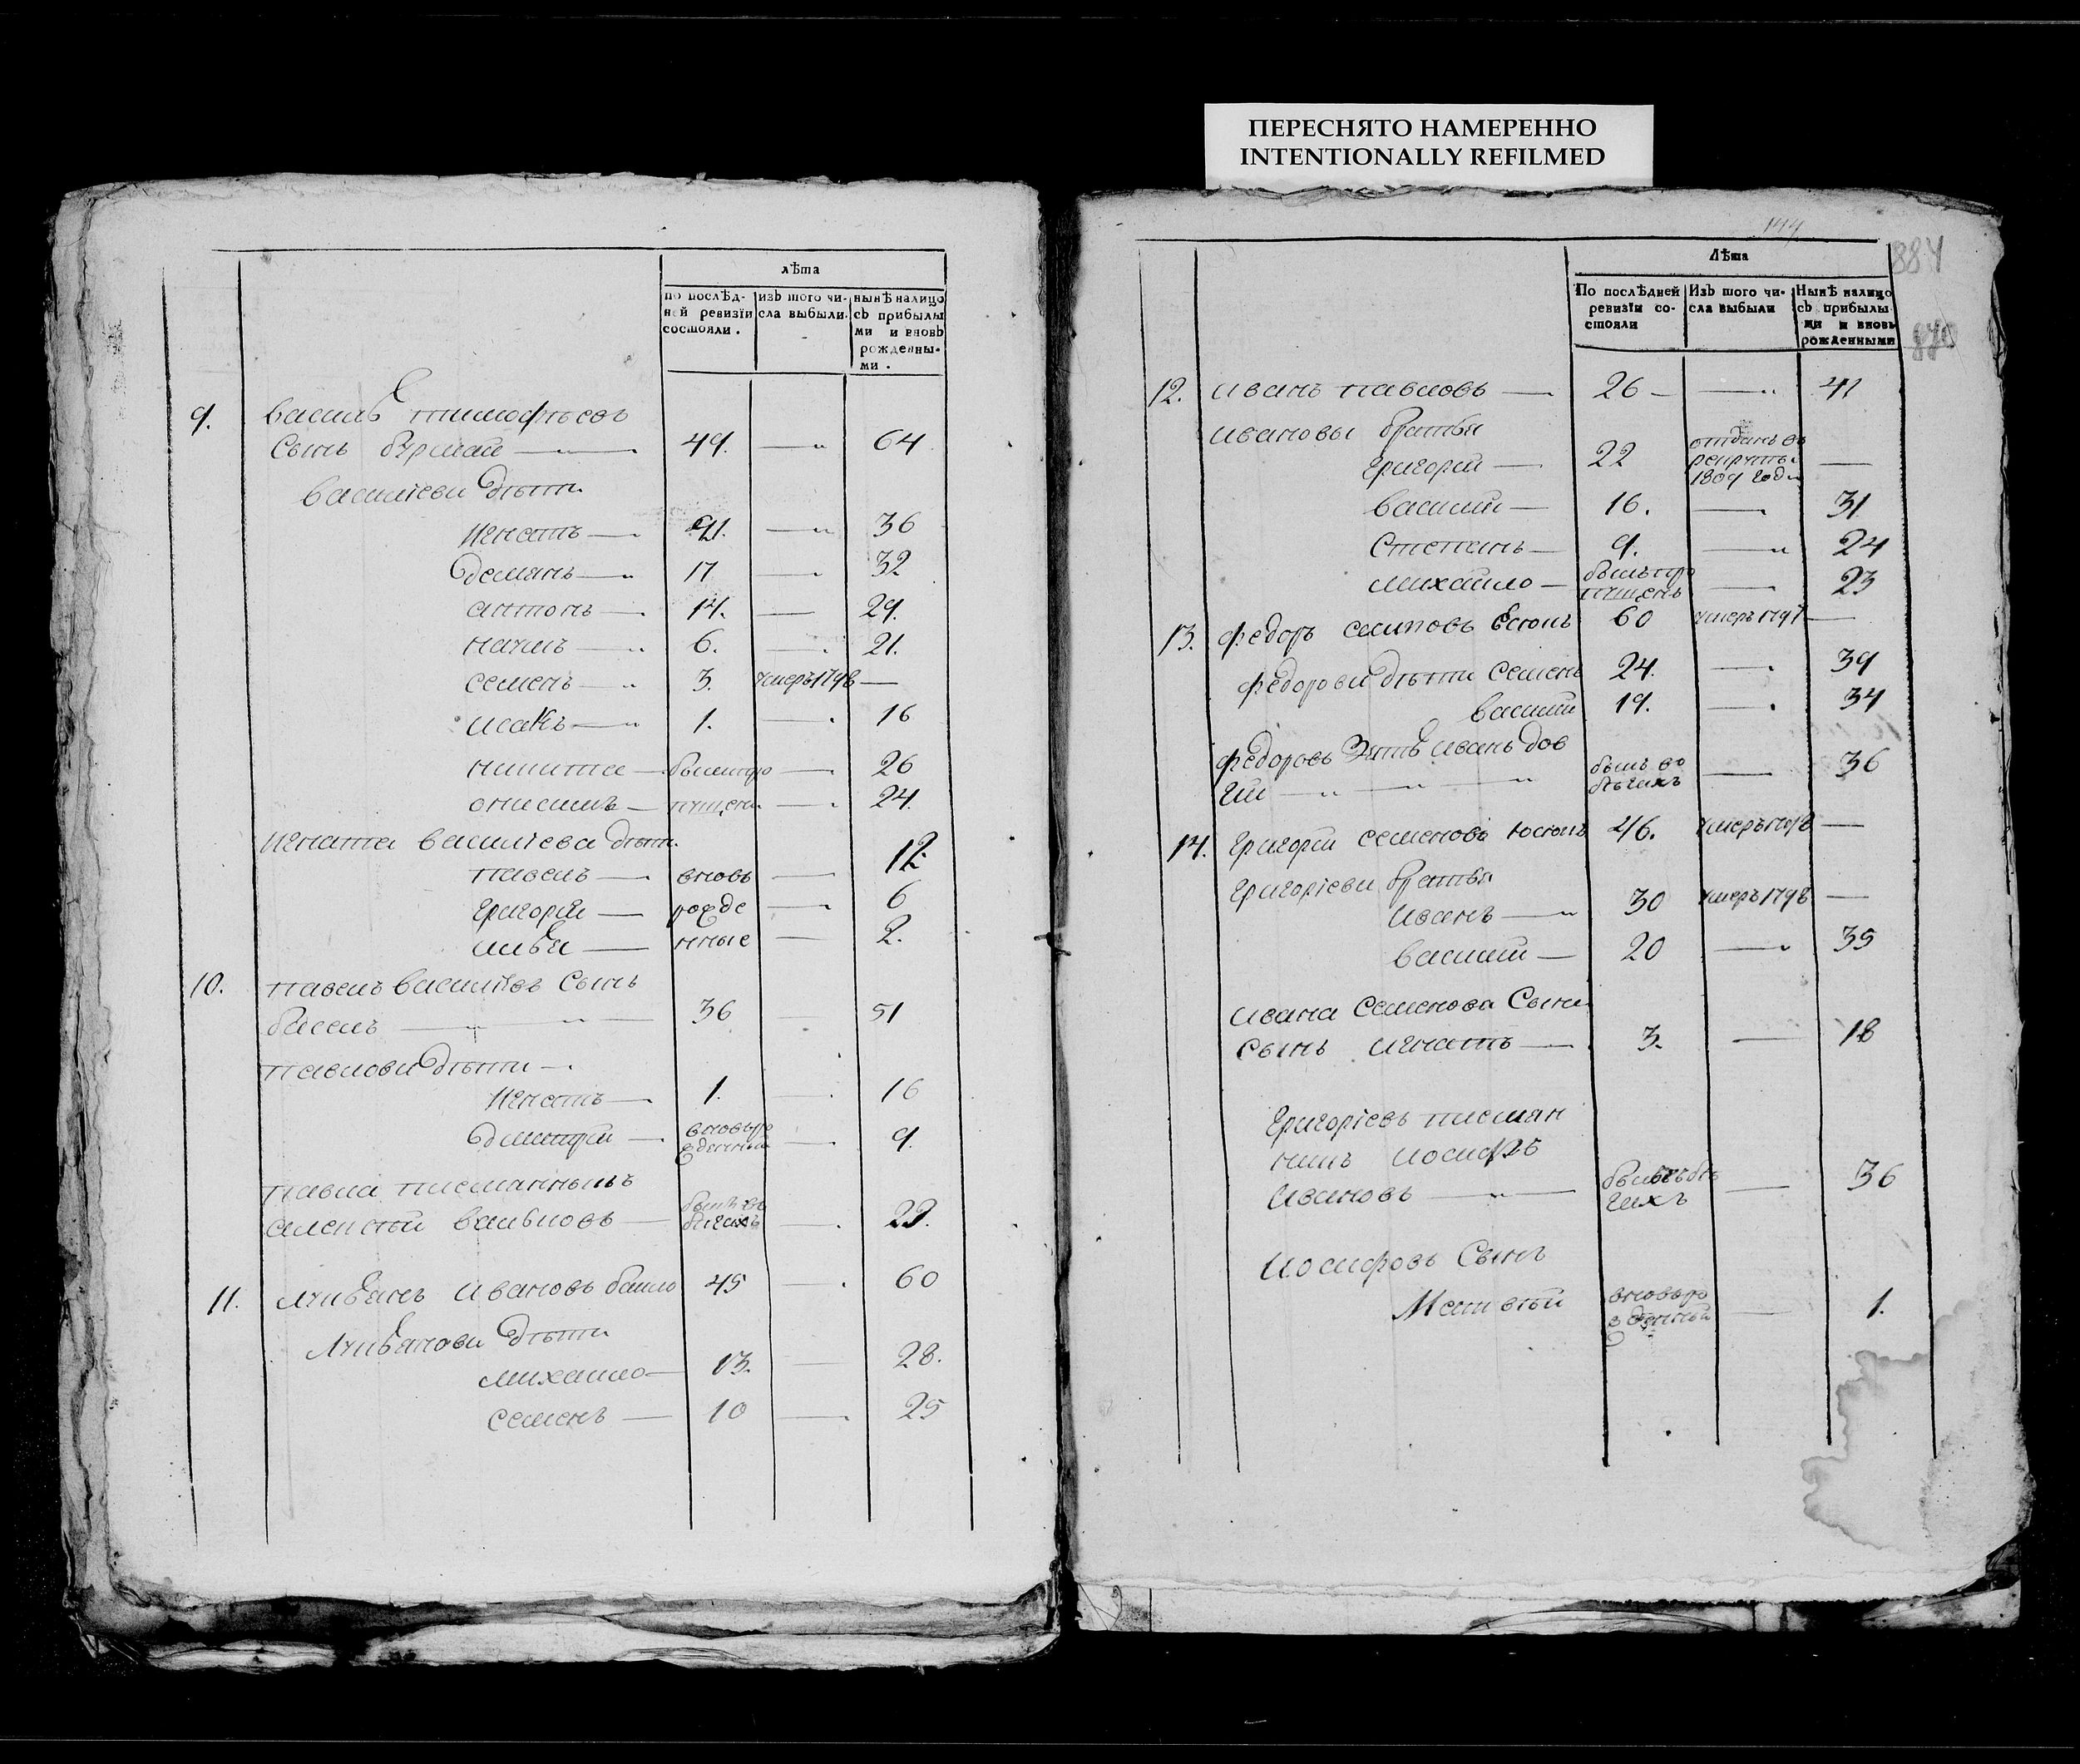 ПЕРЕСНЯТО НАМЕРЕННО
INTENTIONALLY REFILMED
лѣта
по послѣд- изь того чи- нынѣ налицо
ней ревизїи сла выбыли. сь прибылы
состояли. ми и вновь
рожденны-
ми.
9. василь тимофѣевъ
сынъ бурлай — 49. — 64
василіеви дѣти
игнатъ — 21. — 36
демянъ — 17 — 32
антонъ — 14. — 29.
наумъ — 6. — 21.
семенъ — 3. умеръ 1798 —
исакъ — 1. — 16
никита — былипро — 26
онисимъ — пущени — 24.
игната василіева дѣти
павелъ — вновь — 12
григорій — рожде — 6
илья — нные — 2.
10. павелъ василієвъ сынъ
— 36 — 51
павлови дѣти —
игнатъ — 1. — 16
дмитрій — вновьро жденный — 9.
павла писманныкъ
алексѣй — былъ въ бѣгахъ — 23.
11. лукьянъ ивановъ — 45 — 60
лукьянови дѣти
михайло — 13. — 28.
семенъ — 10 — 25
144
884
Лѣта
По послѣдней Изь того чи- Нынѣ налицо
ревизїи со- сла выбыли сь прибылы
стояли ми и вновь
рожденными
870
12. иванъ павловъ — 26 — 41
ивановы братья
григорій — 22 отданъ въ рекруты 1809 года —
василій — 16. — 31
степанъ — 9. — 24
михайло — былъпро пущенъ — 23
13. федоръ осиповъ 60 умеръ 1797 —
федорови дѣти семенъ 24. — 39
василій 19. — 34
федоровъ зять иванъ дов
гій — былъ во бѣгахъ — 36
14. григорій семеновъ 46. умеръ 1798 —
григоріеви братья
иванъ — 30 умеръ 1798 —
василій — 20 — 35
ивана семенова сына
сынъ игнатъ — 3. — 18
григоріевъ писман
никъ иосифъ
ивановъ — былъвъбѣ гахъ — 36
иосифовъ сынъ
матвѣй вновьро жденный — 1.